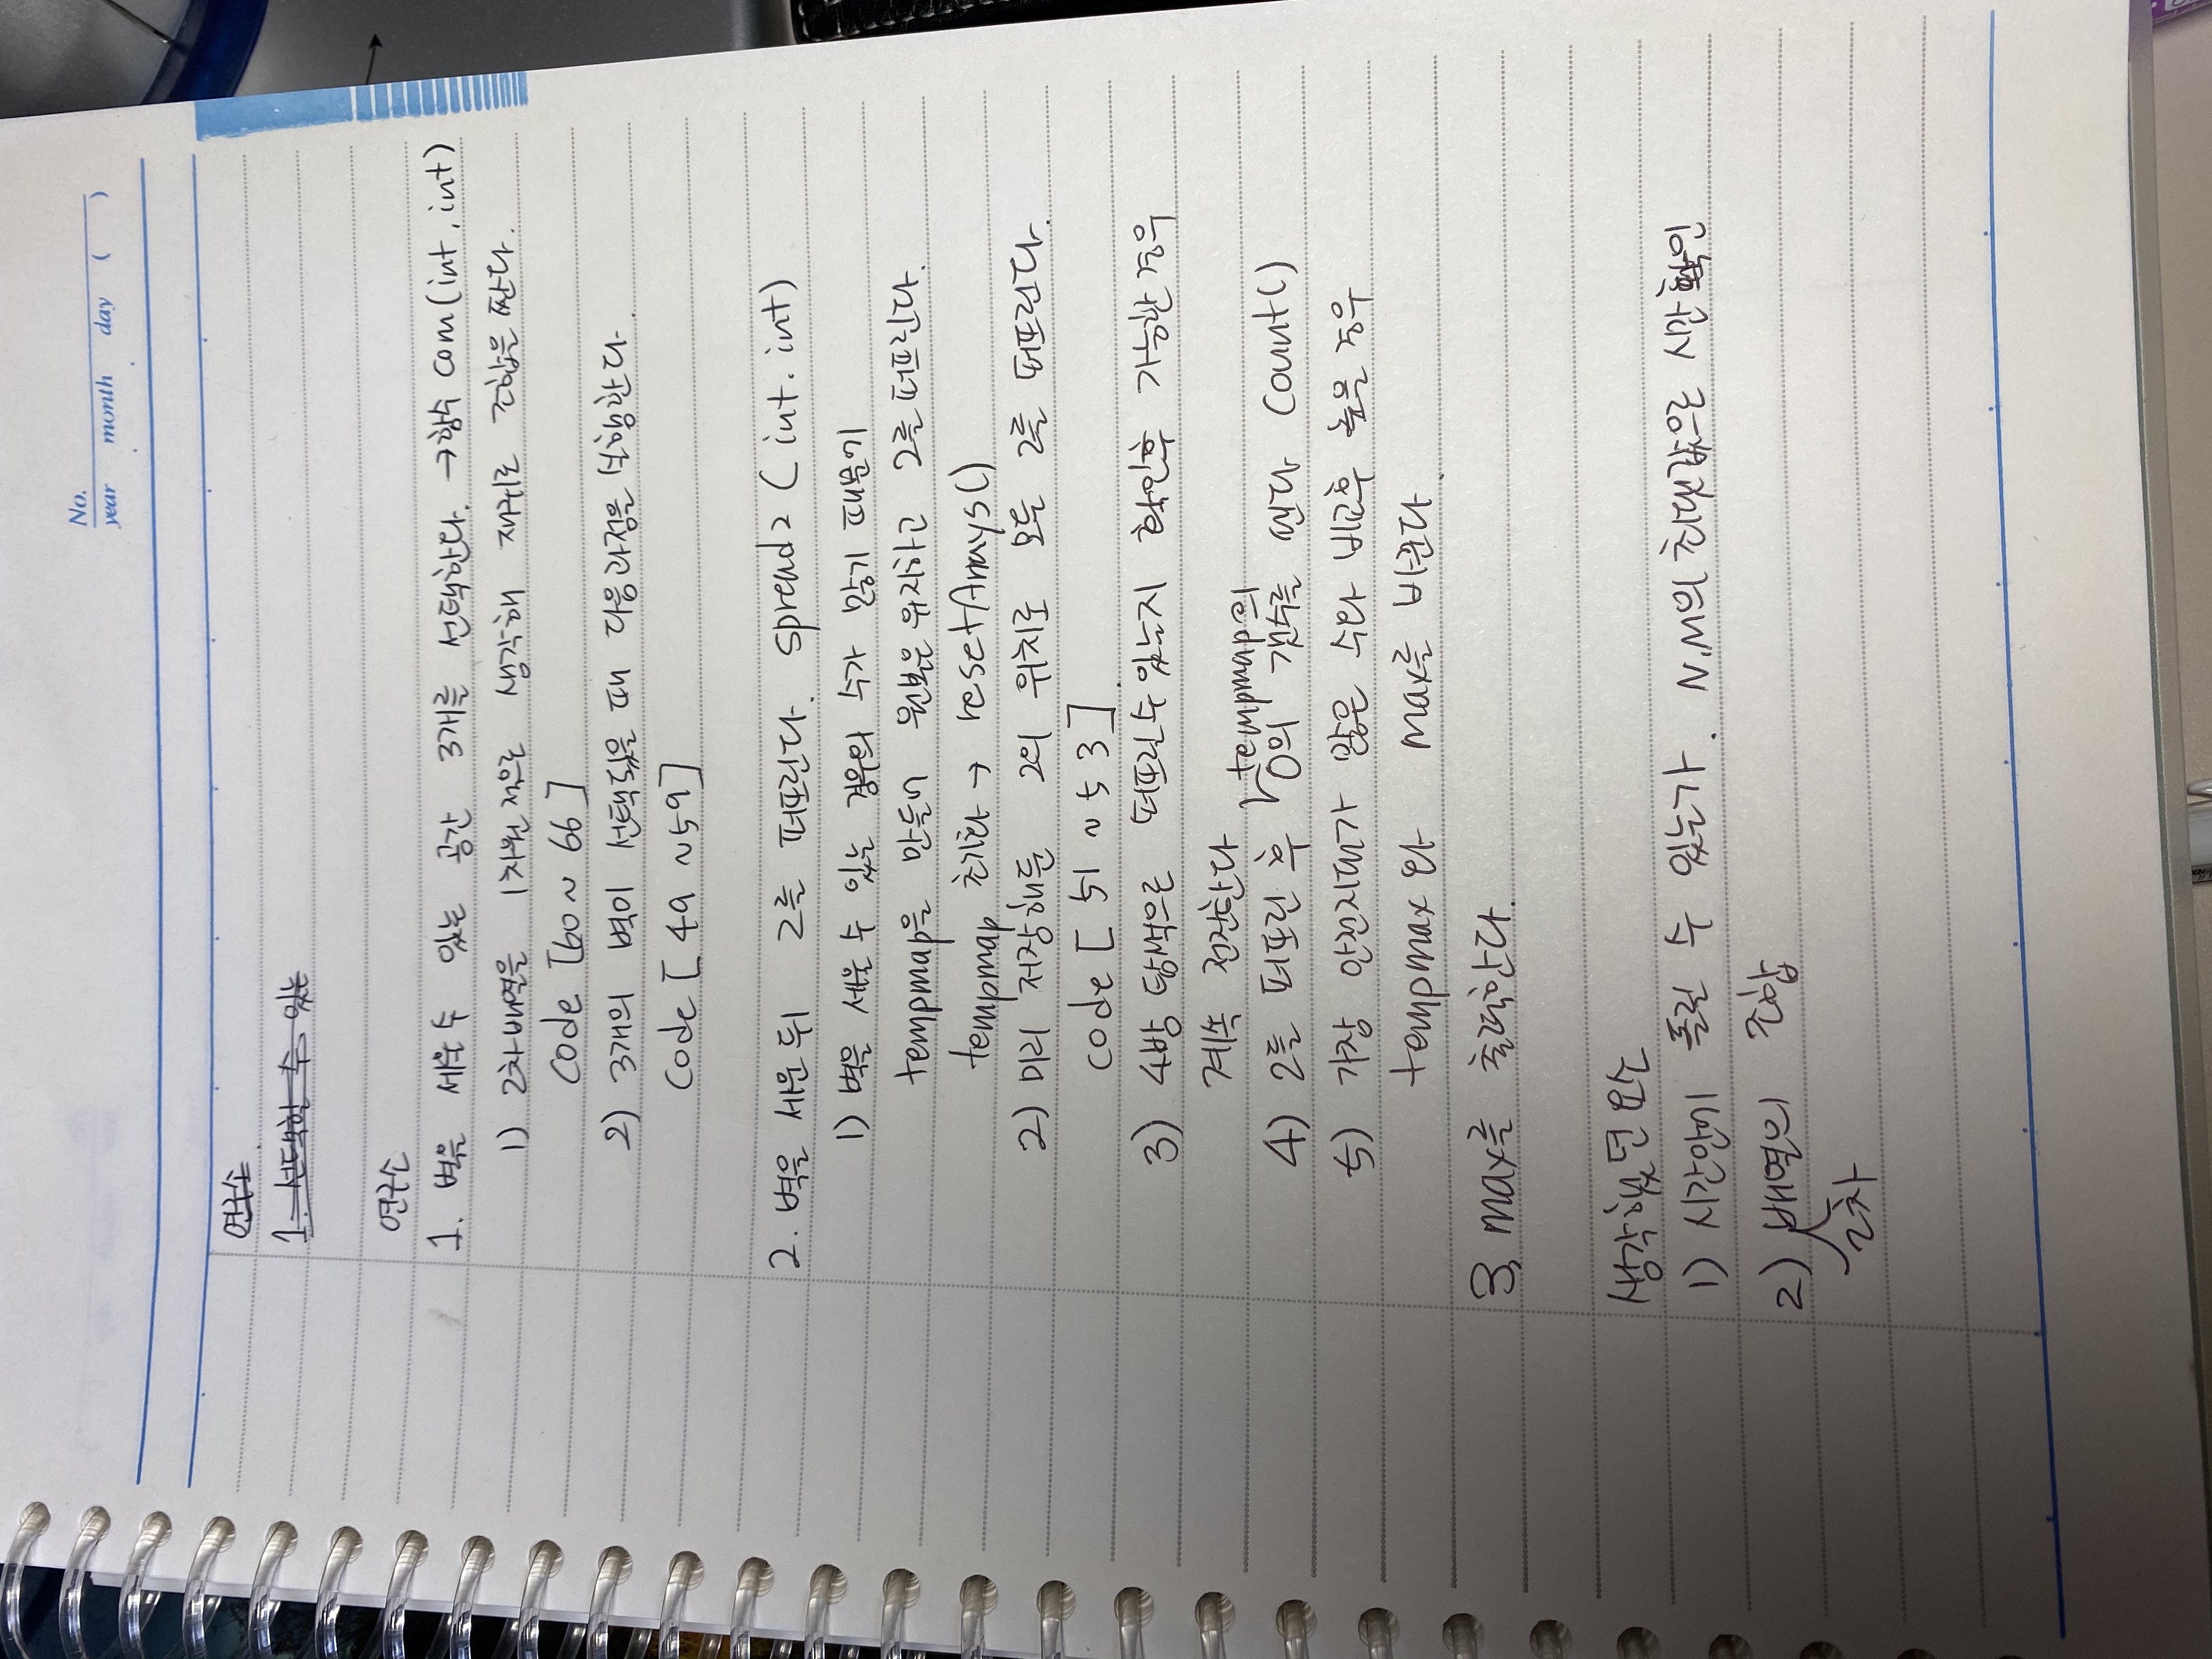 No.
year month day ( )
연구소
1. 선택할 수 있는
연구소
1. 벽을 세울 수 있는 공간 3개를 선택한다. → 함수 com(int, int)
1) 2차 배열을 1차원 적으로 생각해 재귀로 조합을 짠다.
code [60 ~ 66]
2) 3개의 벽이 선택됬을 때 다음과정을 실행한다.
code [49 ~ 59]
2. 벽을 세운 뒤 2를 퍼프린다. spread2 (int. int)
1) 벽을 세울 수 있는 경우의 수가 많기 때문에
tempmap을 만들어 원본은 유지하고 2를 퍼프린다.
tempmap 초기화 → resetArrays()
2) 미리 저장해둔 2의 위치로 모든 2를 퍼프린다.
code [51 ~ 53].
3) 4방 탐색으로 퍼프릴 수 있는지 확인후 가능한 경우
계속 전진한다
tempmap의
4) 2를 퍼프린 후 0의 갯수를 센다 count()
5) 가장 안전지대가 많은 수와 비교후 높을 경우
tempmax 와 max를 바꾼다.
3. max를 출력한다.
생각했던 요소
1) 시간안에 돌릴 수 있는가. N,M의 최댓값으로 시간 확인
2) 배열의 조합
2차